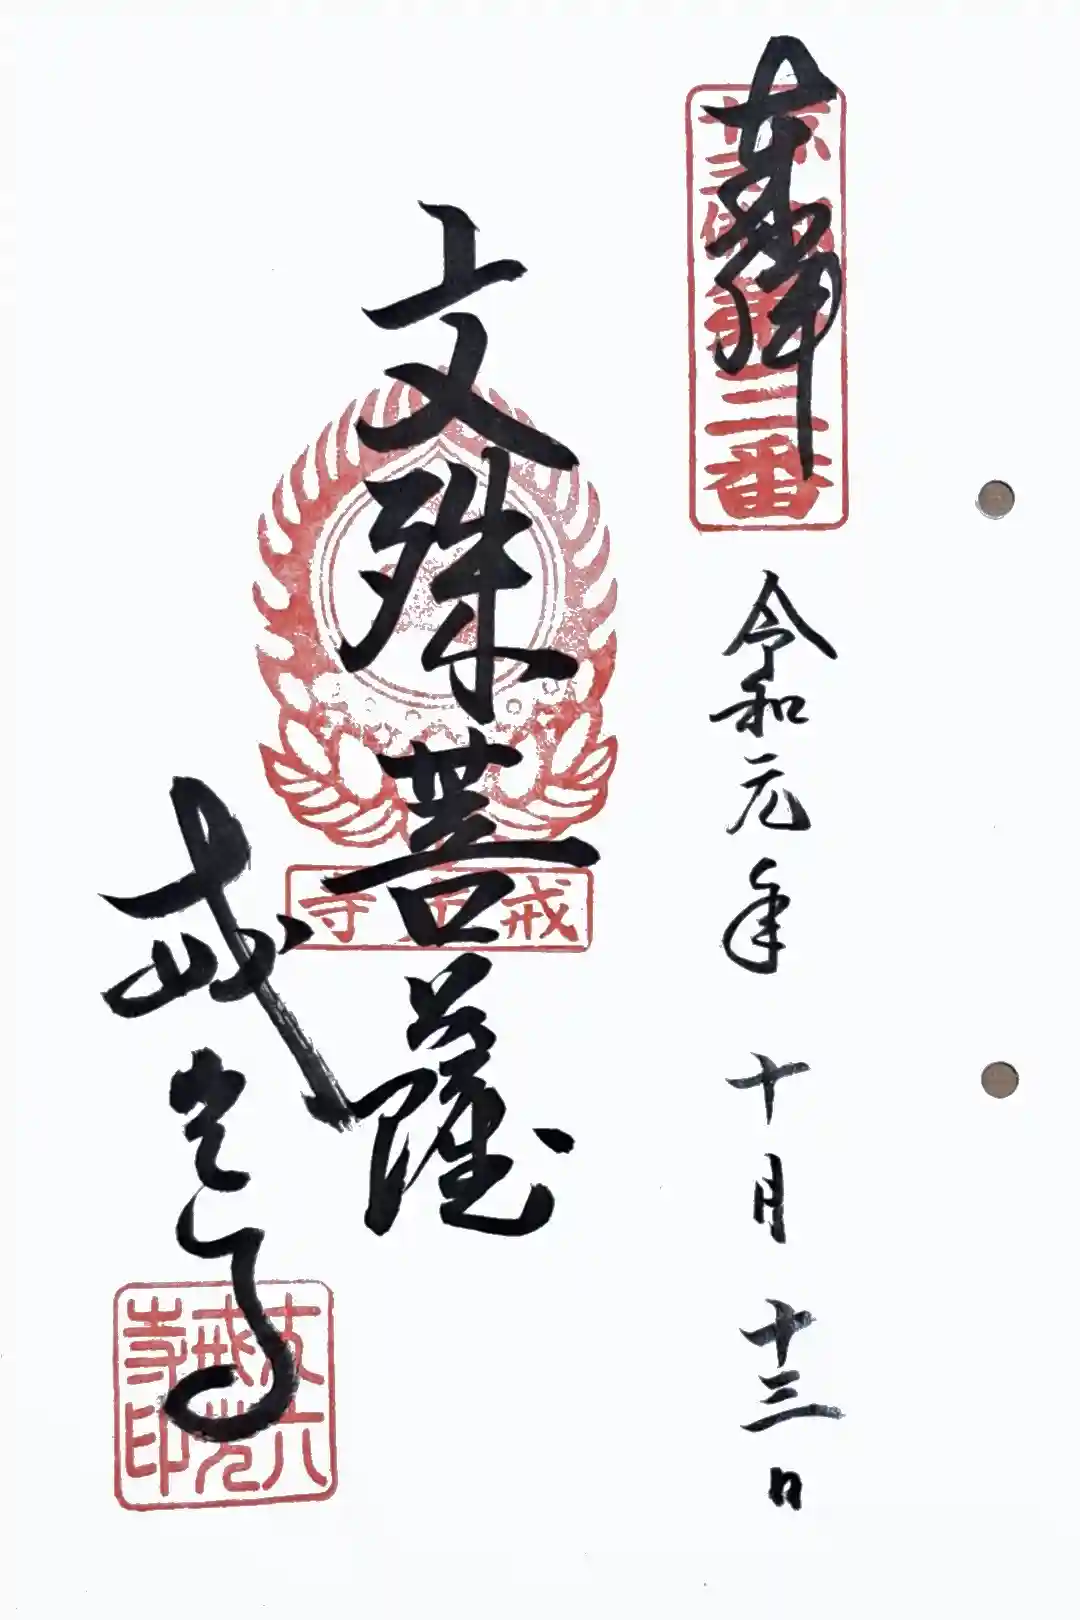 奉拝
京都
十三佛霊場
第三番
令和元年 十月 十三日
文殊菩薩
戒光寺
戒光寺
丈六
戒光
寺印